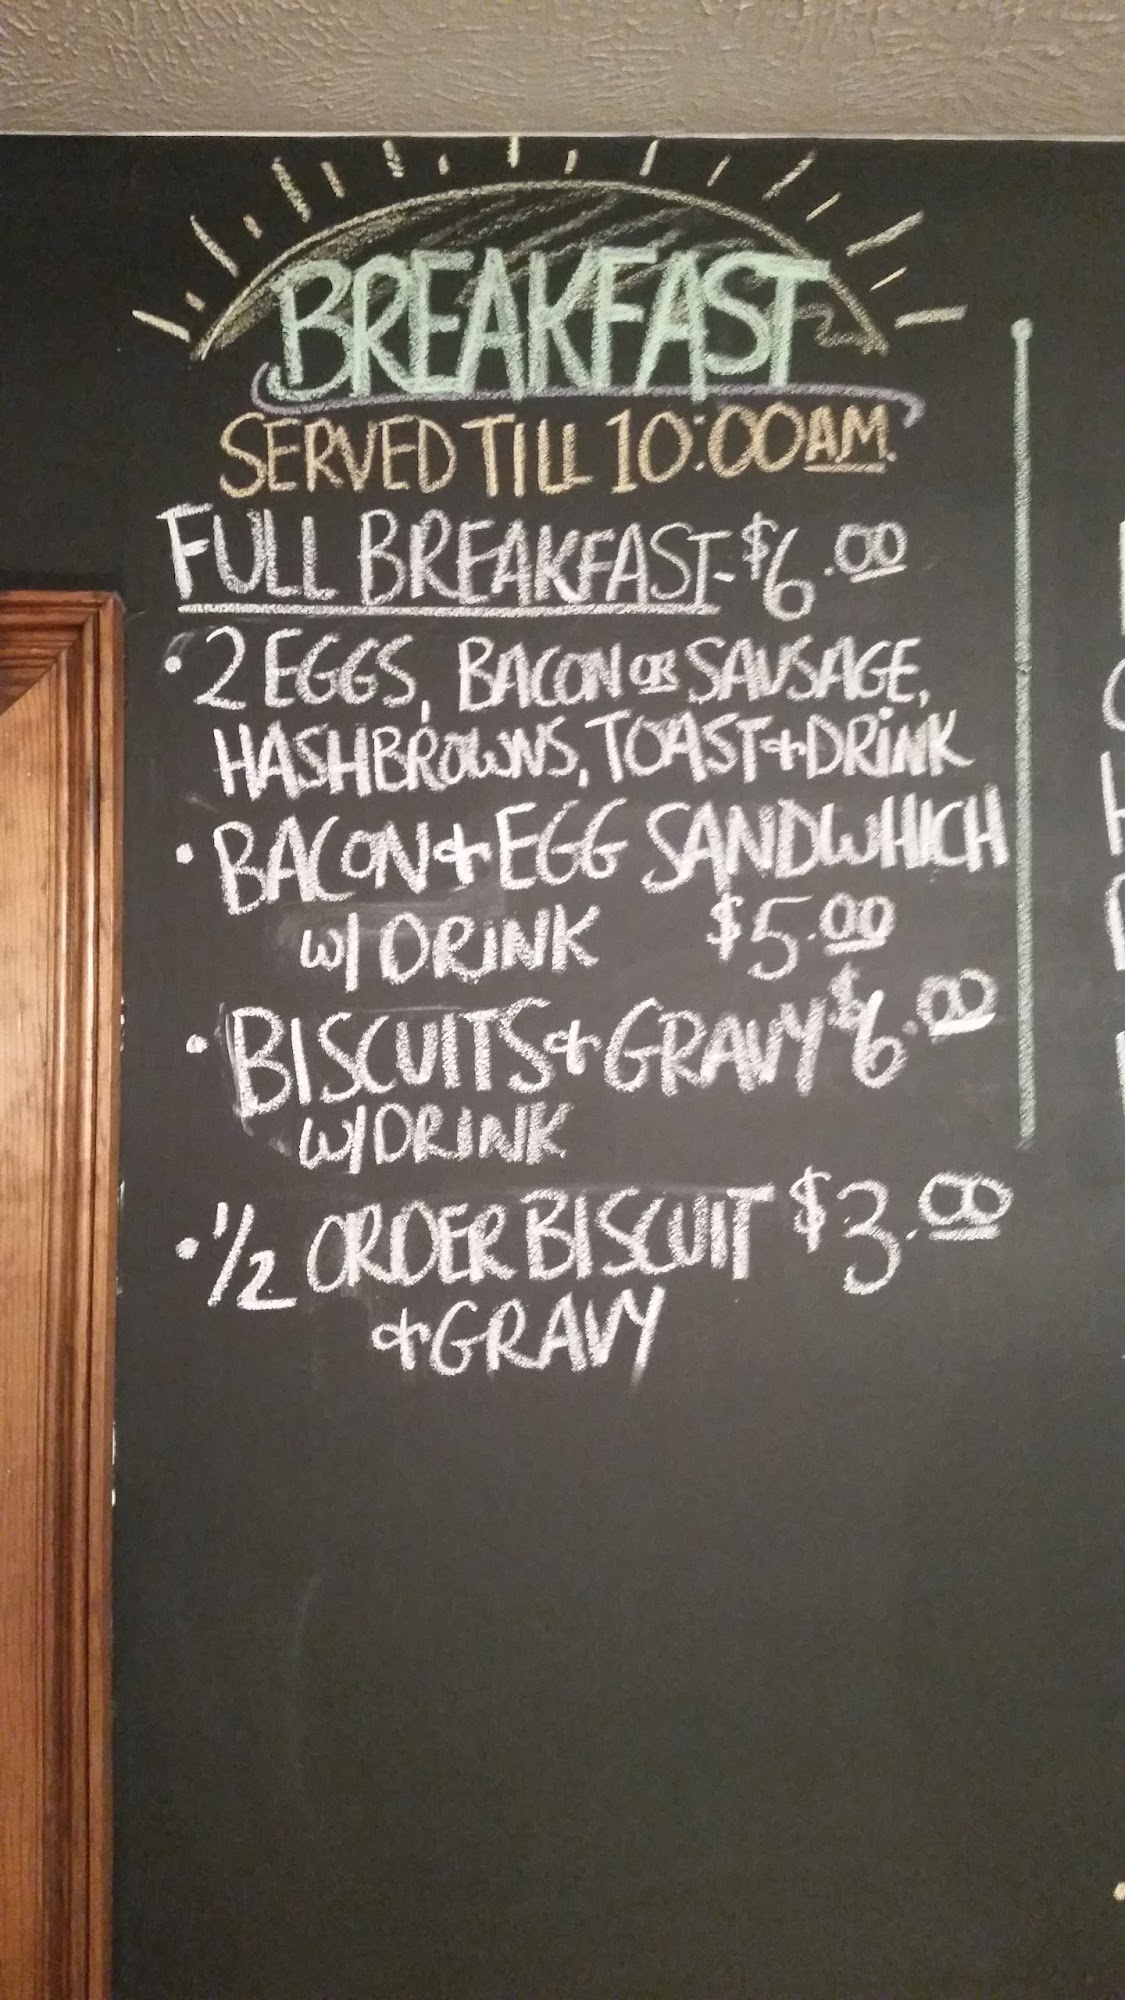 BREAKFAST
SERVED TILL 10:00AM.
FULL BREAKFAST-$6.00
• 2 EGGS, BACON OR SAUSAGE,
HASHBROWNS, TOAST & DRINK
• BACON & EGG SANDWHICH
W/ DRINK $5.00
• BISCUITS & GRAVY $6.00
W/ DRINK
• 1/2 ORDER BISCUIT $3.00
& GRAVY